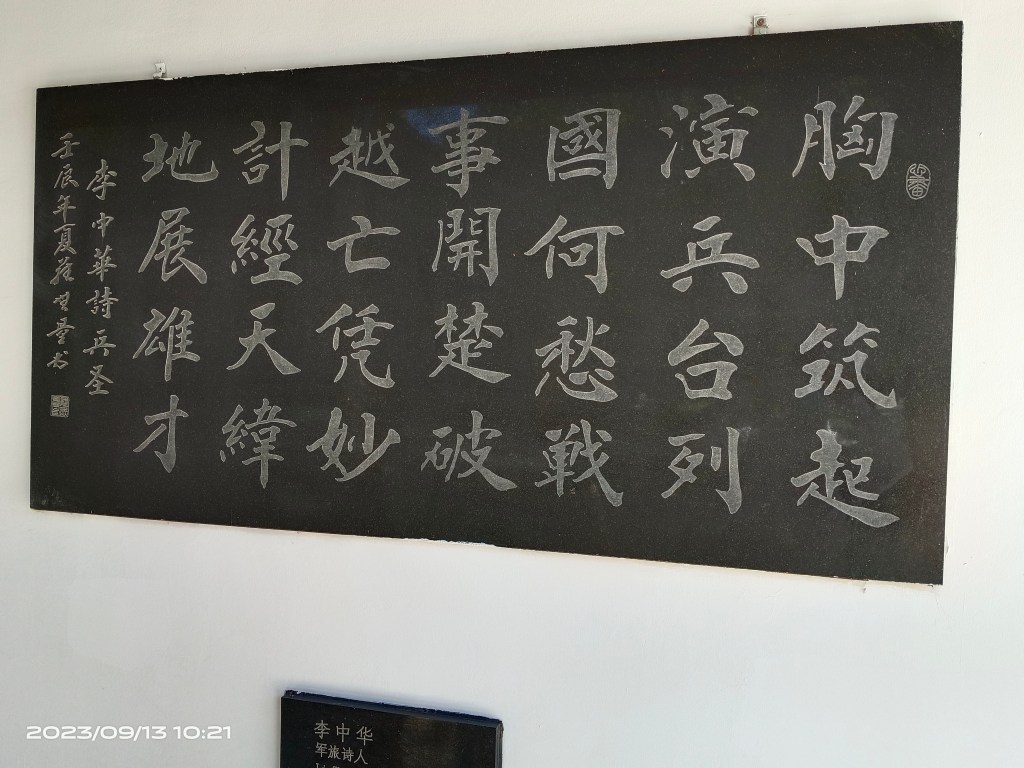 胸中筑起
演兵台列
國何愁戰
事開楚破
越亡凭妙
計經天緯
地展雄才
李中華詩兵圣
壬辰年夏
书
李中华
军旅诗人
2023/09/13 10:21